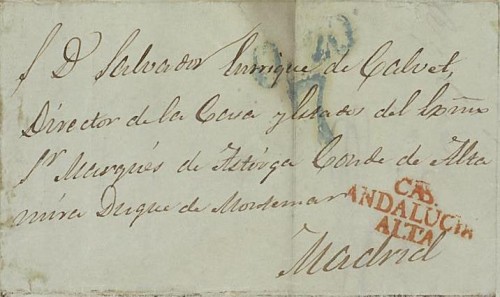 S D Salvador Enrrique de Calvet,
Director de la Casa y Estados del Exmo
Sr Marqués de Astórga Conde de Alta
mira Duque de Montemar
CAB
ANDALUCIA
ALTA
Madrid